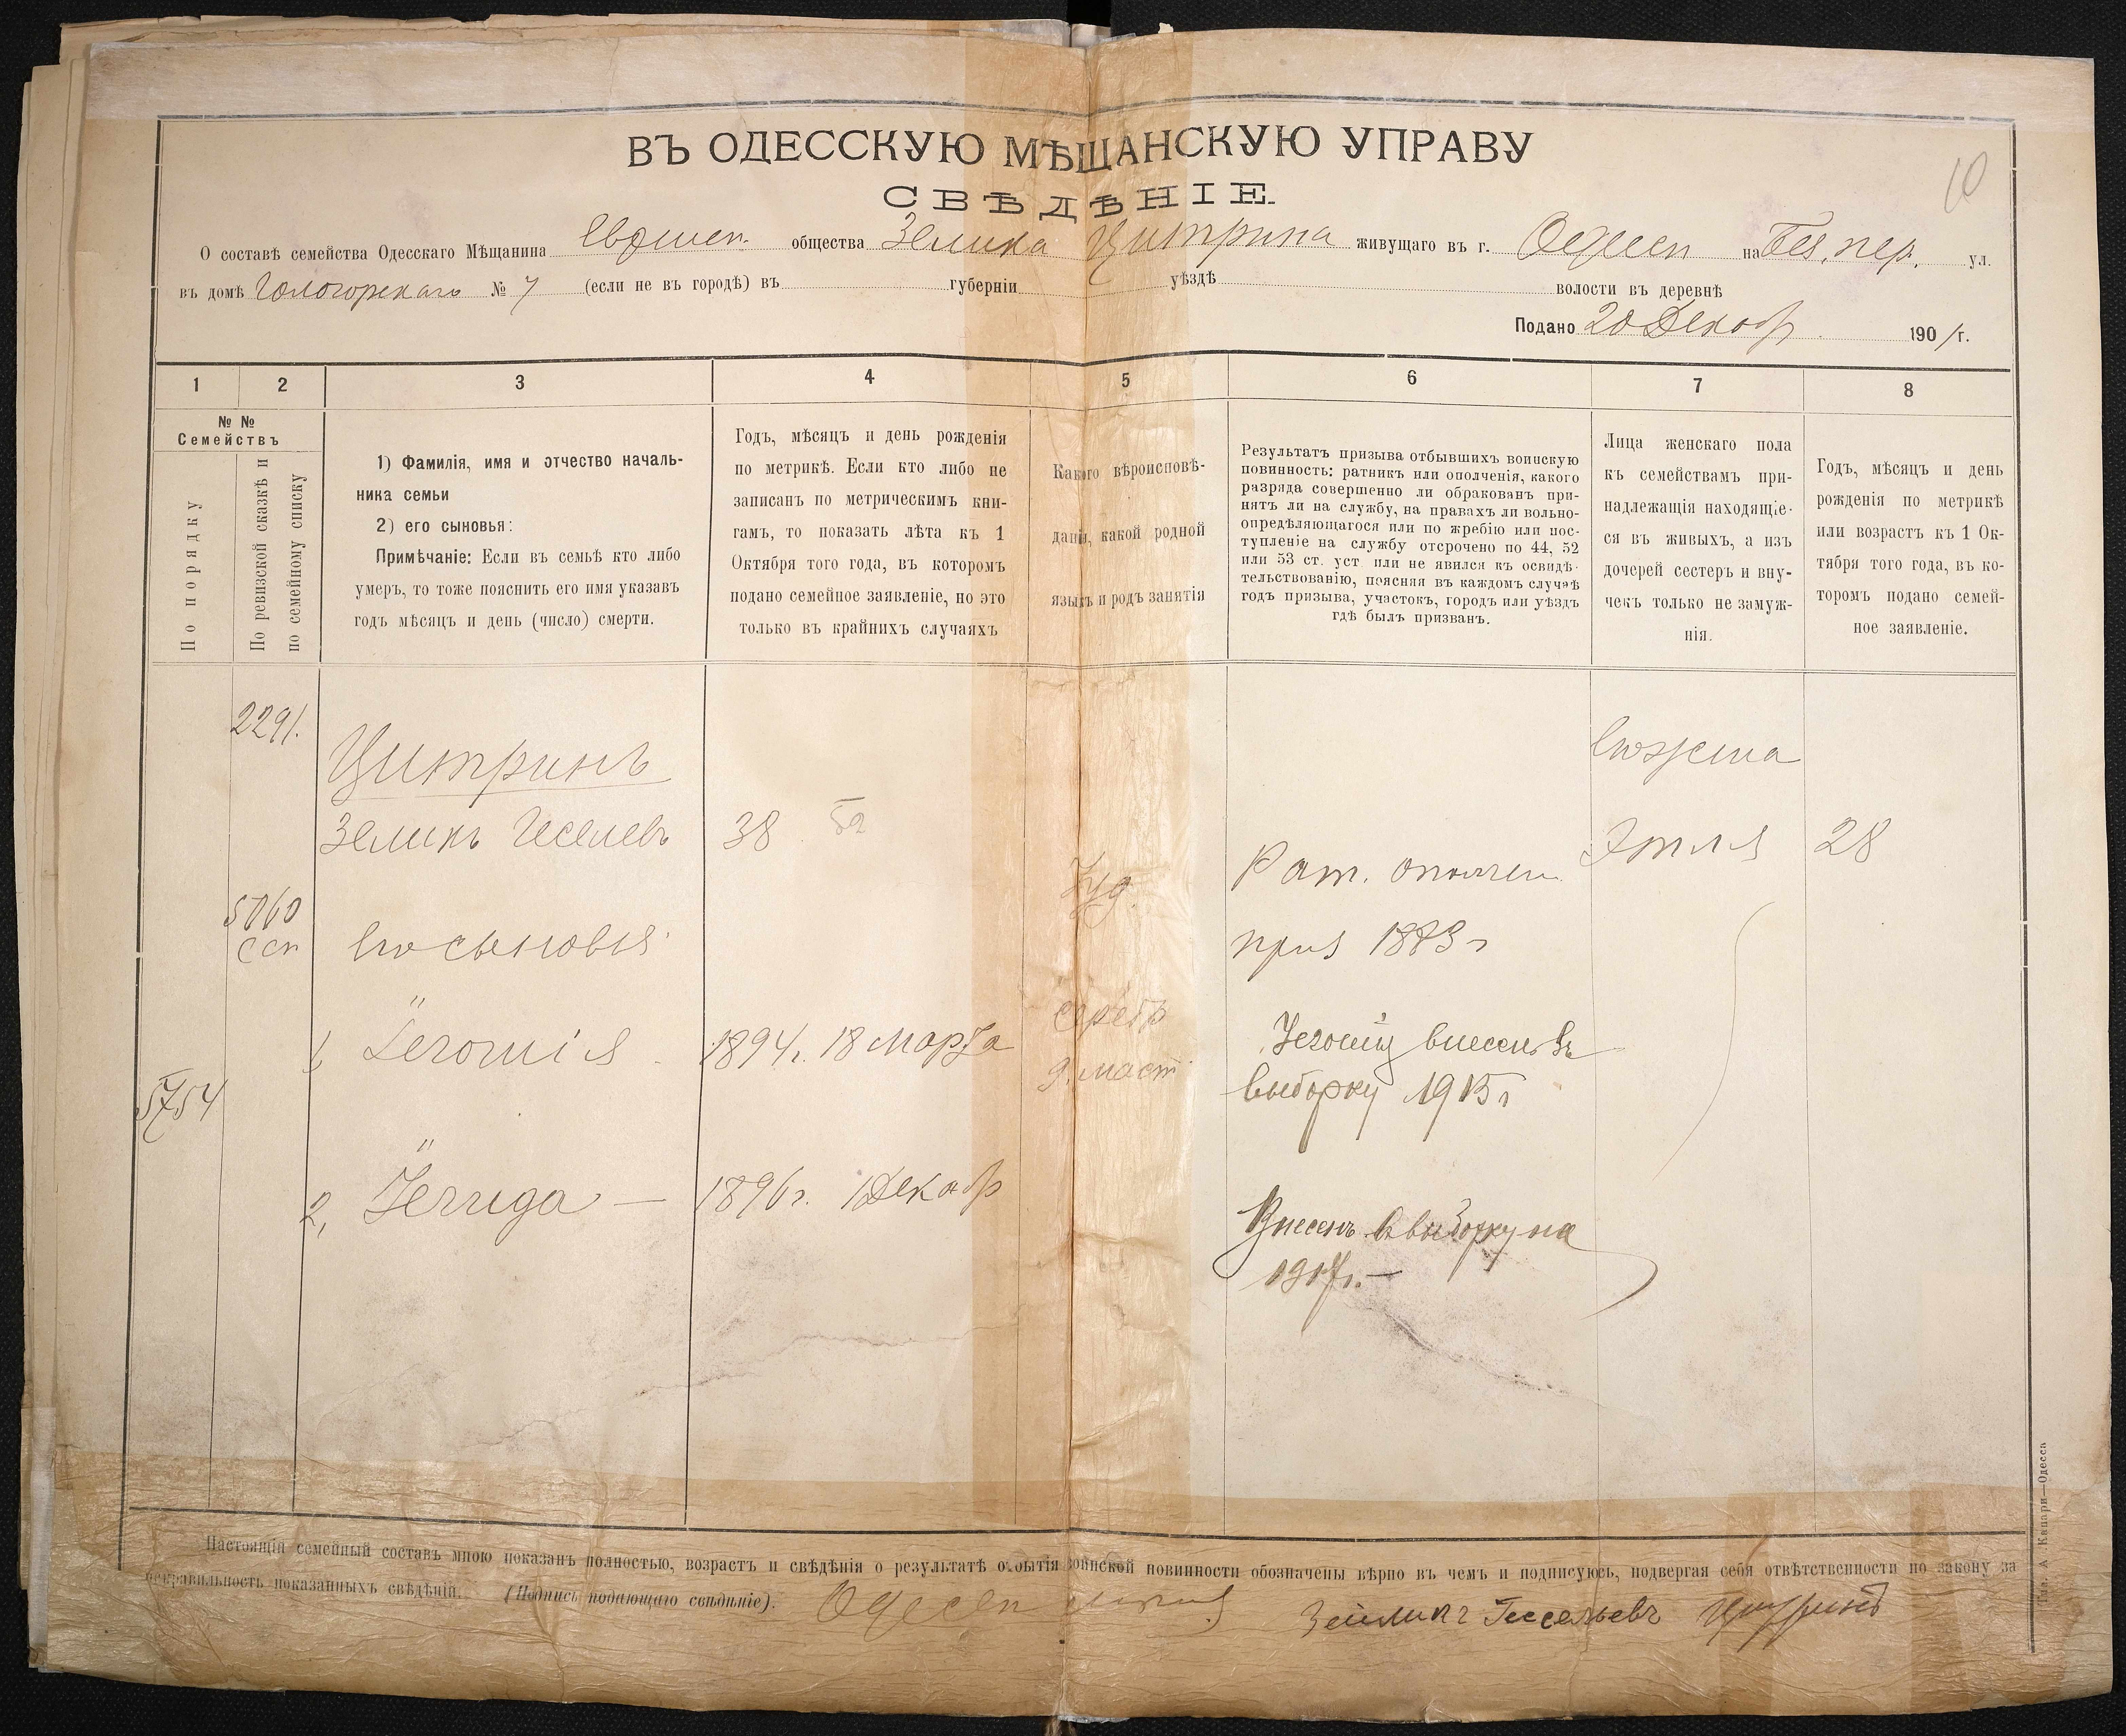 10
ВЪ ОДЕССКУЮ МѢЩАНСКУЮ УПРАВУ
СВѢДѢНІЕ.
О составѣ семейства Одесскаго Мѣщанина общества Зелика Цитрина живущаго въ г. Одессѣ на пер. ул.
въ домѣ Гологорскаго № 7 (если не въ городѣ) въ губерніи уѣздѣ волости въ деревнѣ
Подано 20 Декабр 1901 г.
1 2 3 4 5 6 7 8
№ №
Семействъ
По порядку
По ревизской сказкѣ и
по семейному списку
1) Фамилія, имя и отчество началь-
ника семьи
2) его сыновья:
Примѣчаніе: Если въ семьѣ кто либо
умеръ, то тоже пояснить его имя указавъ
годъ мѣсяцъ и день (число) смерти.
Годъ, мѣсяцъ и день рожденія
по метрикѣ. Если кто либо не
записанъ по метрическимъ кни-
гамъ, то показать лѣта къ 1
Октября того года, въ которомъ
подано семейное заявленіе, но это
только въ крайнихъ случаяхъ
Какого вѣроисповѣ-
данія, какой родной
языкъ и родъ занятія
Результатъ призыва отбывшихъ воинскую
повинность: ратникъ или ополченія, какого
разряда совершенно ли обракованъ при-
нятъ ли на службу, на правахъ ли вольно-
опредѣляющагося или по жребію или пос-
тупленіе на службу отсрочено по 44, 52
или 53 ст. уст или не явился къ освидѣ-
тельствованію, поясняя въ каждомъ случаѣ
годъ призыва, участокъ, городъ или уѣздъ
гдѣ былъ призванъ.
Лица женскаго пола
къ семействамъ при-
надлежащія находящіе-
ся въ живыхъ, а изъ
дочерей сестеръ и вну-
чекъ только не замуж-
нія.
Годъ, мѣсяцъ и день
рожденія по метрикѣ
или возрастъ къ 1 Ок-
тября того года, въ ко-
торомъ подано семей-
ное заявленіе.
2291.
Цитринъ
Его жена
Зеликъ Геселевъ 38 52
Іуд.
Рат. ополчен
Этля 28
5060
Его сыновья
приз 1883 г
1, 1894 г. 18 Марта
внесенъ въ
выборку 1915 г
5754
2, Іегуда — 1896 г. 1 Декабр
Внесенъ въ выборку на
1917 г. —
Настоящій семейный составъ мною показанъ полностью, возрастъ и свѣдѣнія о результатѣ отбытія воинской повинности обозначены вѣрно въ чемъ и подписуюсь, подвергая себя отвѣтственности по закону за
неправильность показанныхъ свѣдѣній. (Подпись подающаго свѣдѣніе). Зейликъ Гессельевъ Цитринъ
Тип. А Капари—Одесса